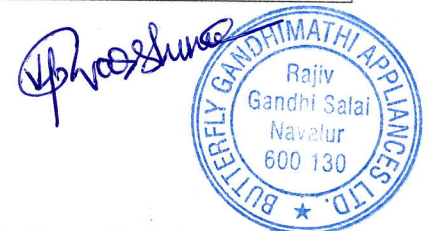 BUTTERFLY GANDHIMATHI APPLIANCES LTD.
Rajiv
Gandhi Salai
Navalur
600 130